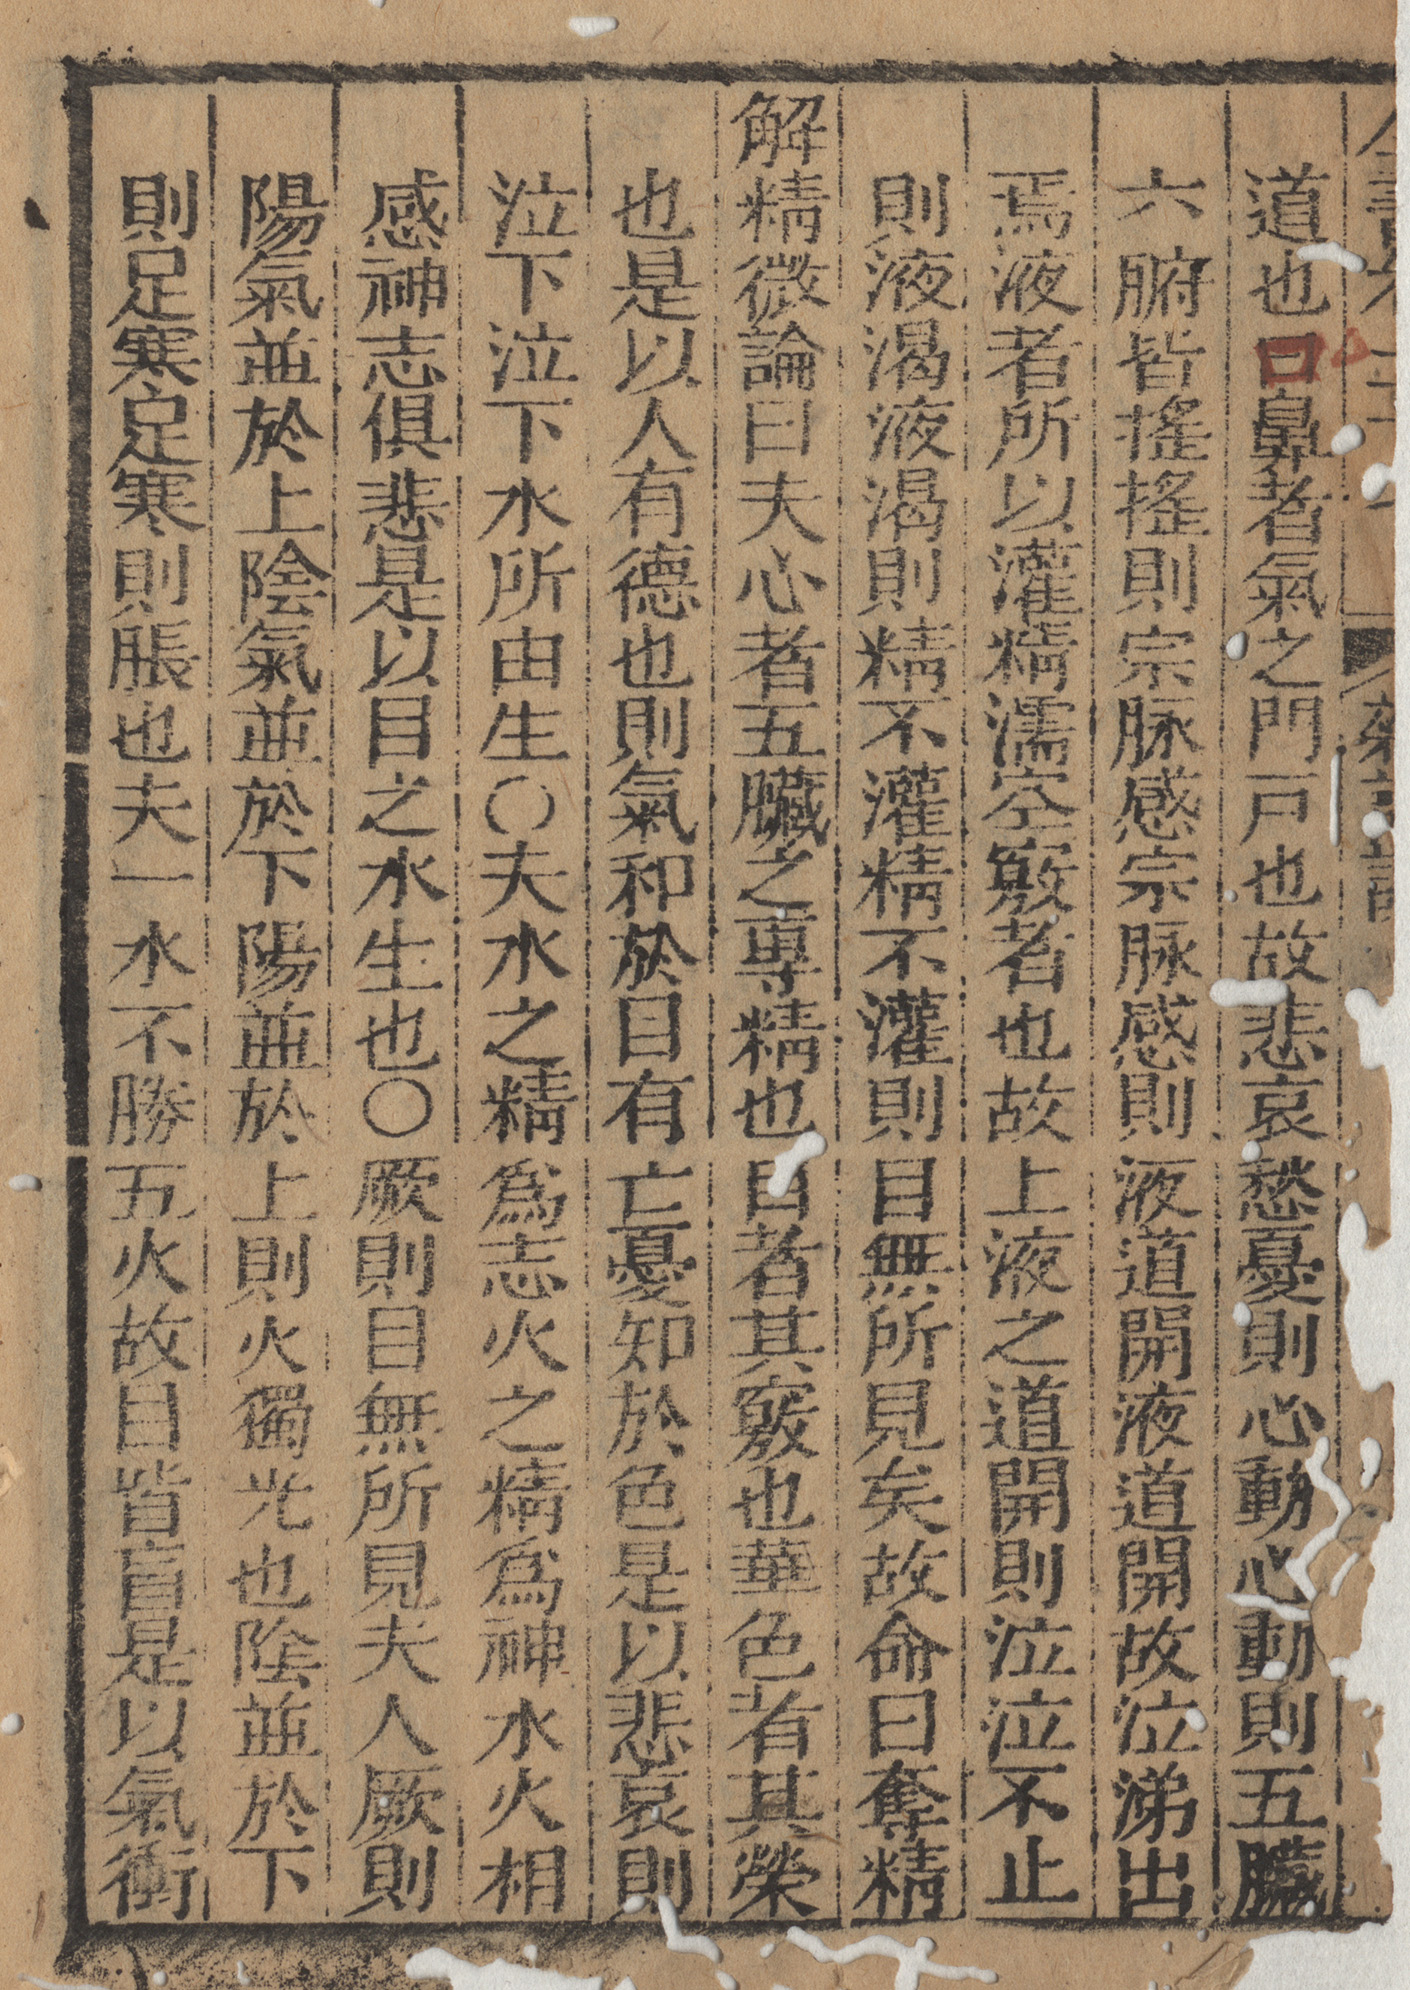 道也口鼻者氣之門戸也故悲哀愁憂則心動心動則五臟
六腑皆搖搖則宗脉感宗脉感則液道開液道開故泣涕出
焉液者所以灌精濡空竅者也故上液之道開則泣泣不止
則液渴液渴則精不灌精不灌則目無所見矣故命曰奪精
解精微論曰夫心者五臟之專精也目者其竅也華色者其榮
也是以人有德也則氣和於目有亡憂知於色是以悲哀則
泣下泣下水所由生○夫水之精爲志火之精爲神水火相
感神志俱悲是以目之水生也○厥則目無所見夫人厥則
陽氣並於上陰氣並於下陽並於上則火獨光也陰並於下
則足寒足寒則脹也夫一水不勝五火故目眥盲是以氣衝